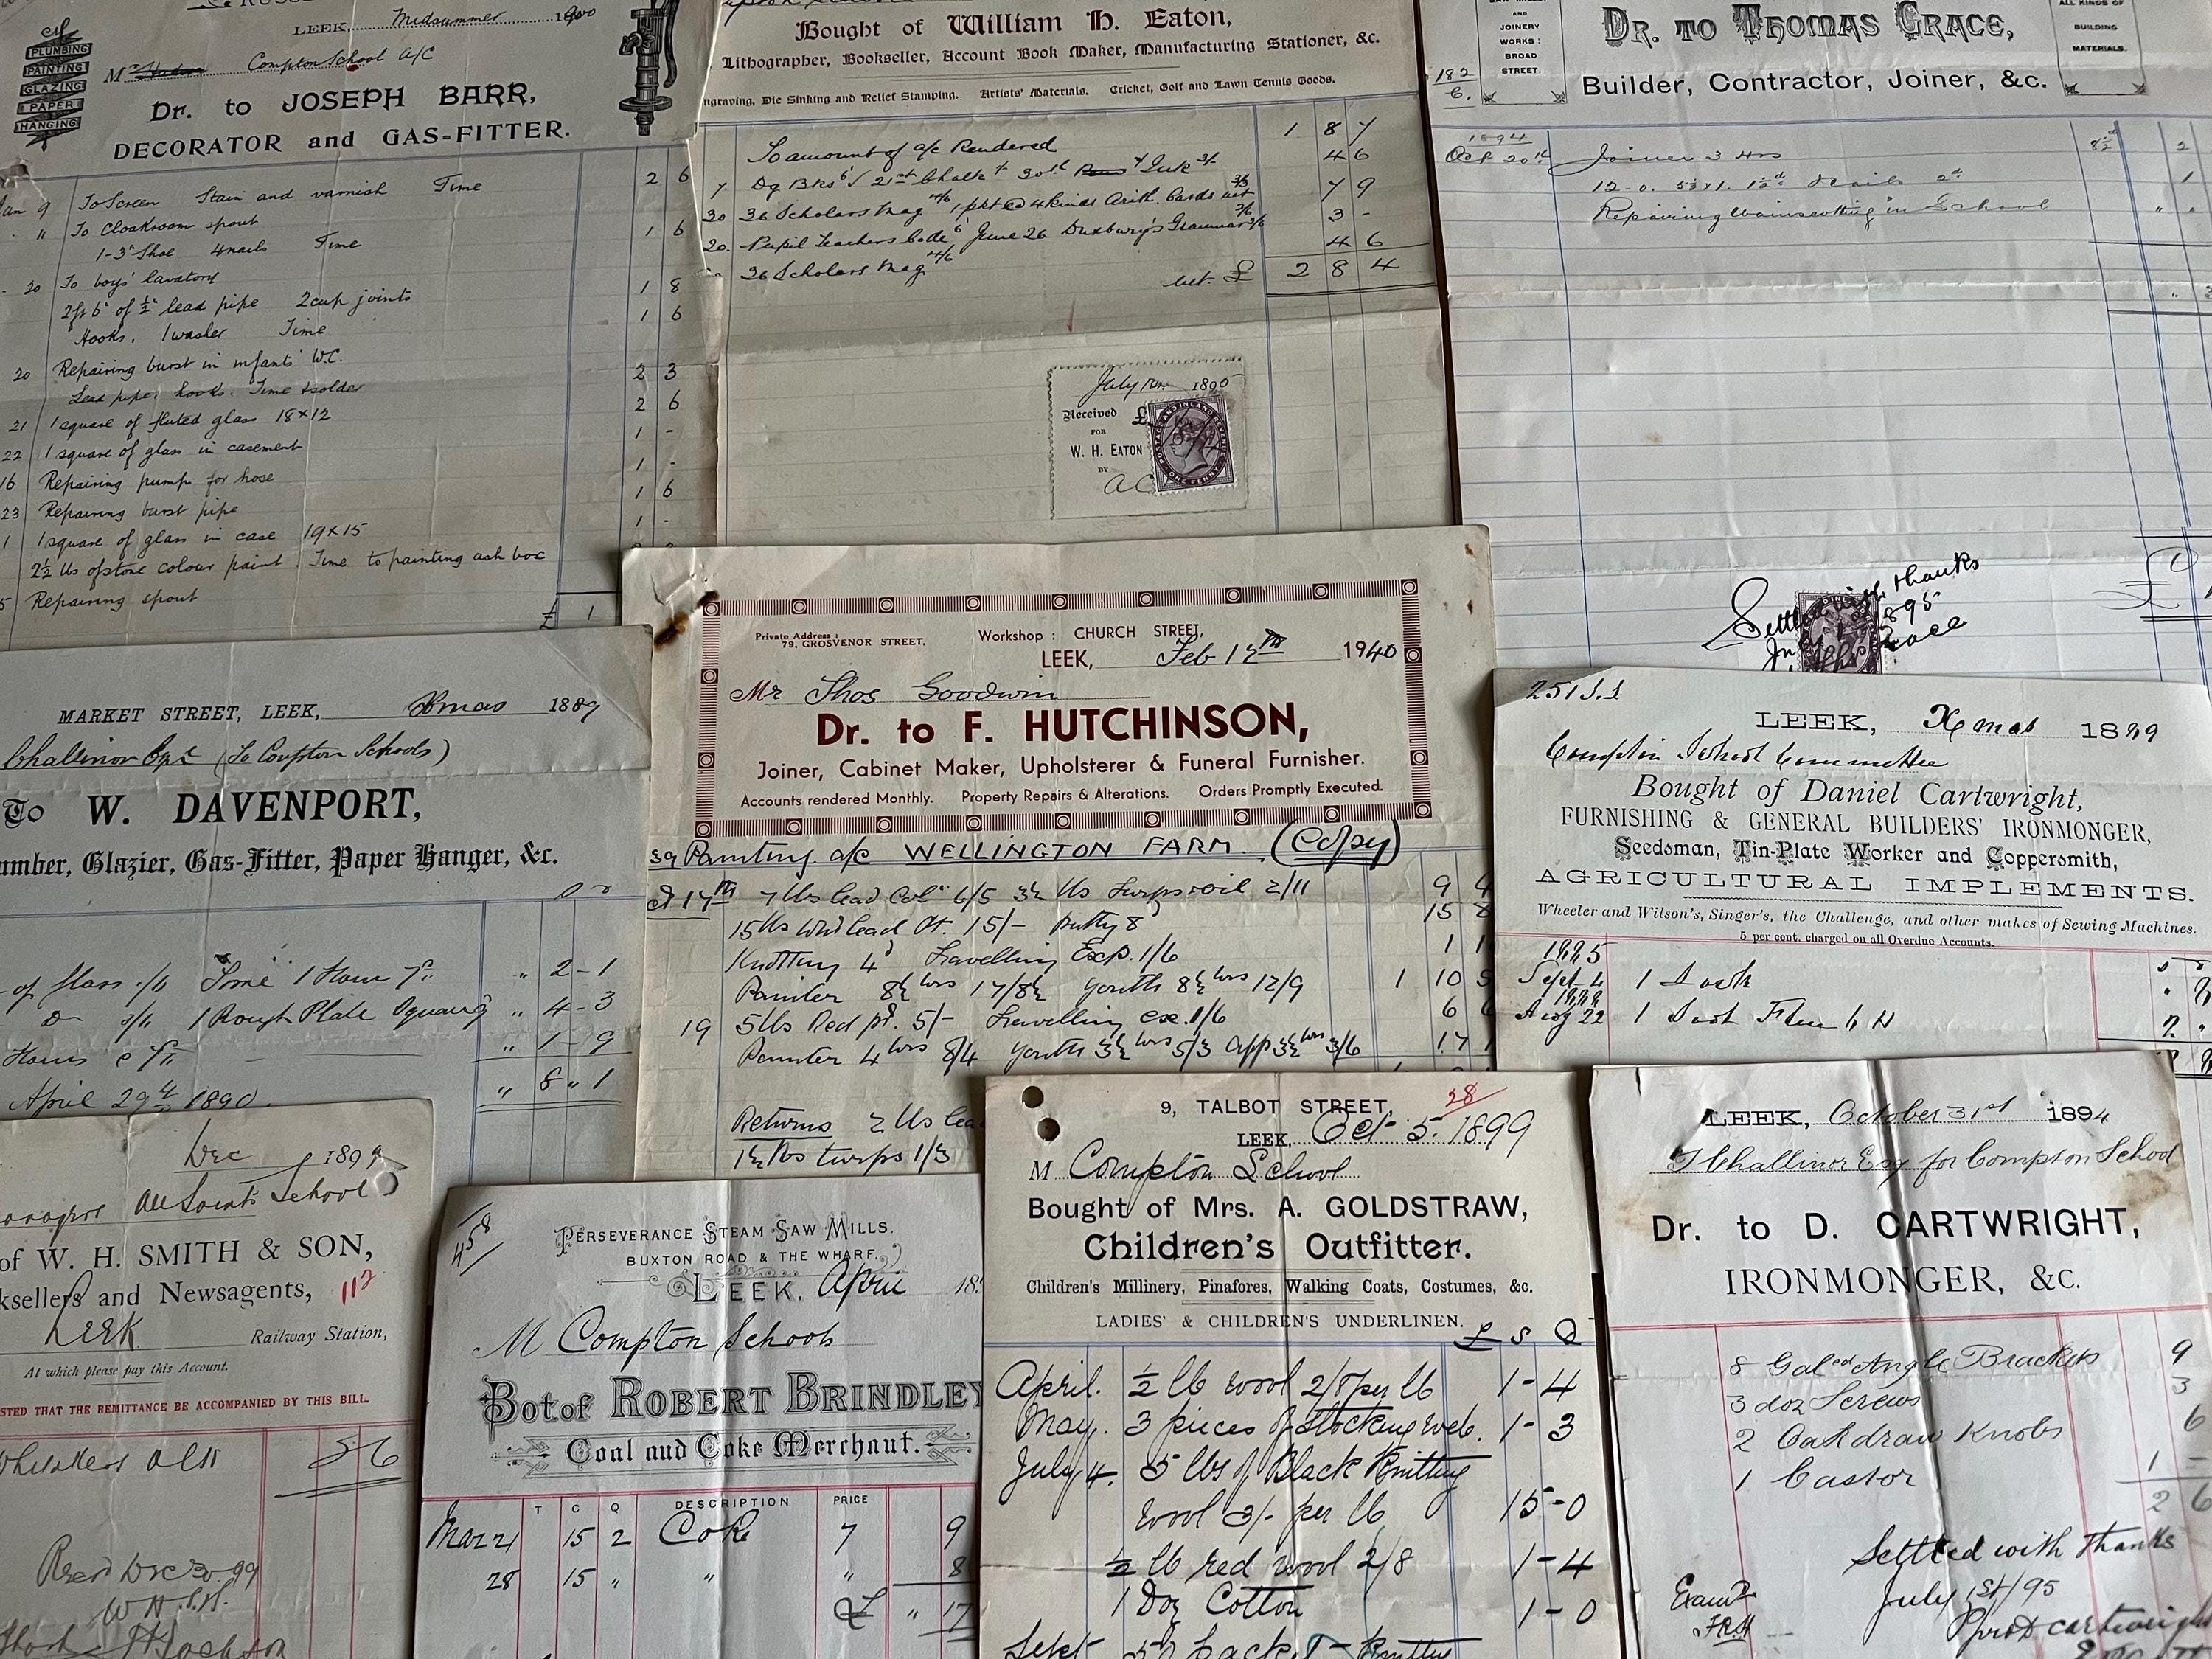 LEEK, Midsummer 1900
PLUMBING
PAINTING
GLAZING
PAPER
HANGING
Compton School A/C
Dr. to JOSEPH BARR,
DECORATOR and GAS-FITTER.
Jan 9 To Screen Stain and varnish Time 2 6
" To Cloakroom spout
1-3" Shoe 4 nails Time 1 6
20 To boys' lavatory
2ft 6" of ½" lead pipe 2 cup joints 1 8
Hooks. 1 washer Time 1 6
20 Repairing burst in infants' W.C.
Lead pipe, hooks. Time & solder 2 3
21 1 square of fluted glass 18 x 12 2 6
22 1 square of glass in casement 1 -
16 Repairing pump for hose 1 -
23 Repairing burst pipe 1 6
1 1 square of glass in case 19 x 15 1 -
2½ lbs of stone colour paint. Time to painting ash box
5 Repairing spout
£ 1
Bought of William H. Eaton,
Lithographer, Bookseller, Account Book Maker, Manufacturing Stationer, &c.
Engraving, Die Sinking and Relief Stamping. Artists' Materials. Cricket, Golf and Lawn Tennis Goods.
To amount of a/c Rendered 1 8 7
7. 4 6
30 36 Scholars Mag 1 pkt @ 4 kinds Arith. Cards 7 9
20. Pupil Teachers Code 6 June 26 Duxbury's Grammar 3 -
36 Scholars Mag 4/6 4 6
net. £ 2 8 4
July 1895
Received £
FOR
W. H. EATON
BY
AC
POSTAGE AND INLAND REVENUE
ONE PENNY
AND
JOINERY
WORKS:
BROAD
STREET.
DR. TO THOMAS GRACE,
ALL KINDS OF
BUILDING
MATERIALS.
Builder, Contractor, Joiner, &c.
182
6.
1894
Oct 20th Joiner 3 Hrs 8½d 2
Repairing Wainscotting in School
£
Settled with thanks
1895
Grace
MARKET STREET, LEEK, Xmas 1889
Challinor Esqr (To Compton Schools)
To W. DAVENPORT,
Plumber, Glazier, Gas-Fitter, Paper Hanger, &c.
of Glass Time 1 Hour " 2-1
Do 1 Rough Plate Square " 4-3
Hours " 1-9
" 8 " 1
April 29th 1890.
Private Address:
79, GROSVENOR STREET,
Workshop: CHURCH STREET,
LEEK, Feb 12th 1940
Mr Thos Goodwin
Dr. to F. HUTCHINSON,
Joiner, Cabinet Maker, Upholsterer & Funeral Furnisher.
Accounts rendered Monthly. Property Repairs & Alterations. Orders Promptly Executed.
39 Painting a/c WELLINGTON FARM. (Copy)
17th 7 lbs lead Col 6/5 3½ lbs turps & oil 2/11 9 4
15 lbs Whi lead Pt. 15/- Putty 8 15 8
Knotting 4 Travelling Exp. 1/6 1 1
Painter 8½ hrs 17/8½ youth 8½ hrs 12/9 1 10 5
19 5 lbs Red pt. 5/- Travelling ex. 1/6 6 6
Painter 4 hrs 8/4 youth 3½ hrs 5/3 app 3½ hrs 3/6 17 1
Returns 2 lbs lea
1½ lbs turps 1/3
LEEK, Xmas 1899
Compton School Committee
Bought of Daniel Cartwright,
FURNISHING & GENERAL BUILDERS' IRONMONGER,
Seedsman, Tin-Plate Worker and Coppersmith,
AGRICULTURAL IMPLEMENTS.
Wheeler and Wilson's, Singer's, the Challenge, and other makes of Sewing Machines.
5 per cent. charged on all Overdue Accounts.
Sept 4 1
Aug 22 1
Dec 1899
All Saints School
of W. H. SMITH & SON,
ksellers and Newsagents,
112
LEEK Railway Station,
At which please pay this Account.
STED THAT THE REMITTANCE BE ACCOMPANIED BY THIS BILL.
Whitakers Alk 5 6
Recd Dec 30-99
W H S
458
PERSEVERANCE STEAM SAW MILLS.
BUXTON ROAD & THE WHARF.
LEEK, April 18
M Compton Schools
Bot of ROBERT BRINDLEY
Coal and Coke Merchant.
T C Q DESCRIPTION PRICE
Mar 21 15 2 Coke 7 9
28 15 " " " 8
£ " 17
28
9, TALBOT STREET,
LEEK, Oct 5. 1899
M Compton School
Bought of Mrs. A. GOLDSTRAW,
Children's Outfitter.
Children's Millinery, Pinafores, Walking Coats, Costumes, &c.
LADIES' & CHILDREN'S UNDERLINEN.
£ S D
April. ½ lb wool 2/8 per lb 1-4
May. 3 pieces of stocking web. 1-3
July 4. 5 lbs of Black Knitting
wool 3/- per lb 15-0
½ lb red wool 2/8 1-4
1 Doz Cotton 1-0
Sept
LEEK, October 31st 1894
Challinor Esq for Compton School
Dr. to D. CARTWRIGHT,
IRONMONGER, &c.
8 Galed Angle Brackets 9
3 doz Screws 3
2 Oak draw Knobs 6
1 Castor 1 -
2 6
Settled with thanks
July 1st/95
pro D Cartwright
Examd